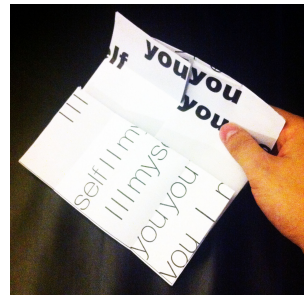 elf
youyou
you
III
self III my
III myse
youyou
you I